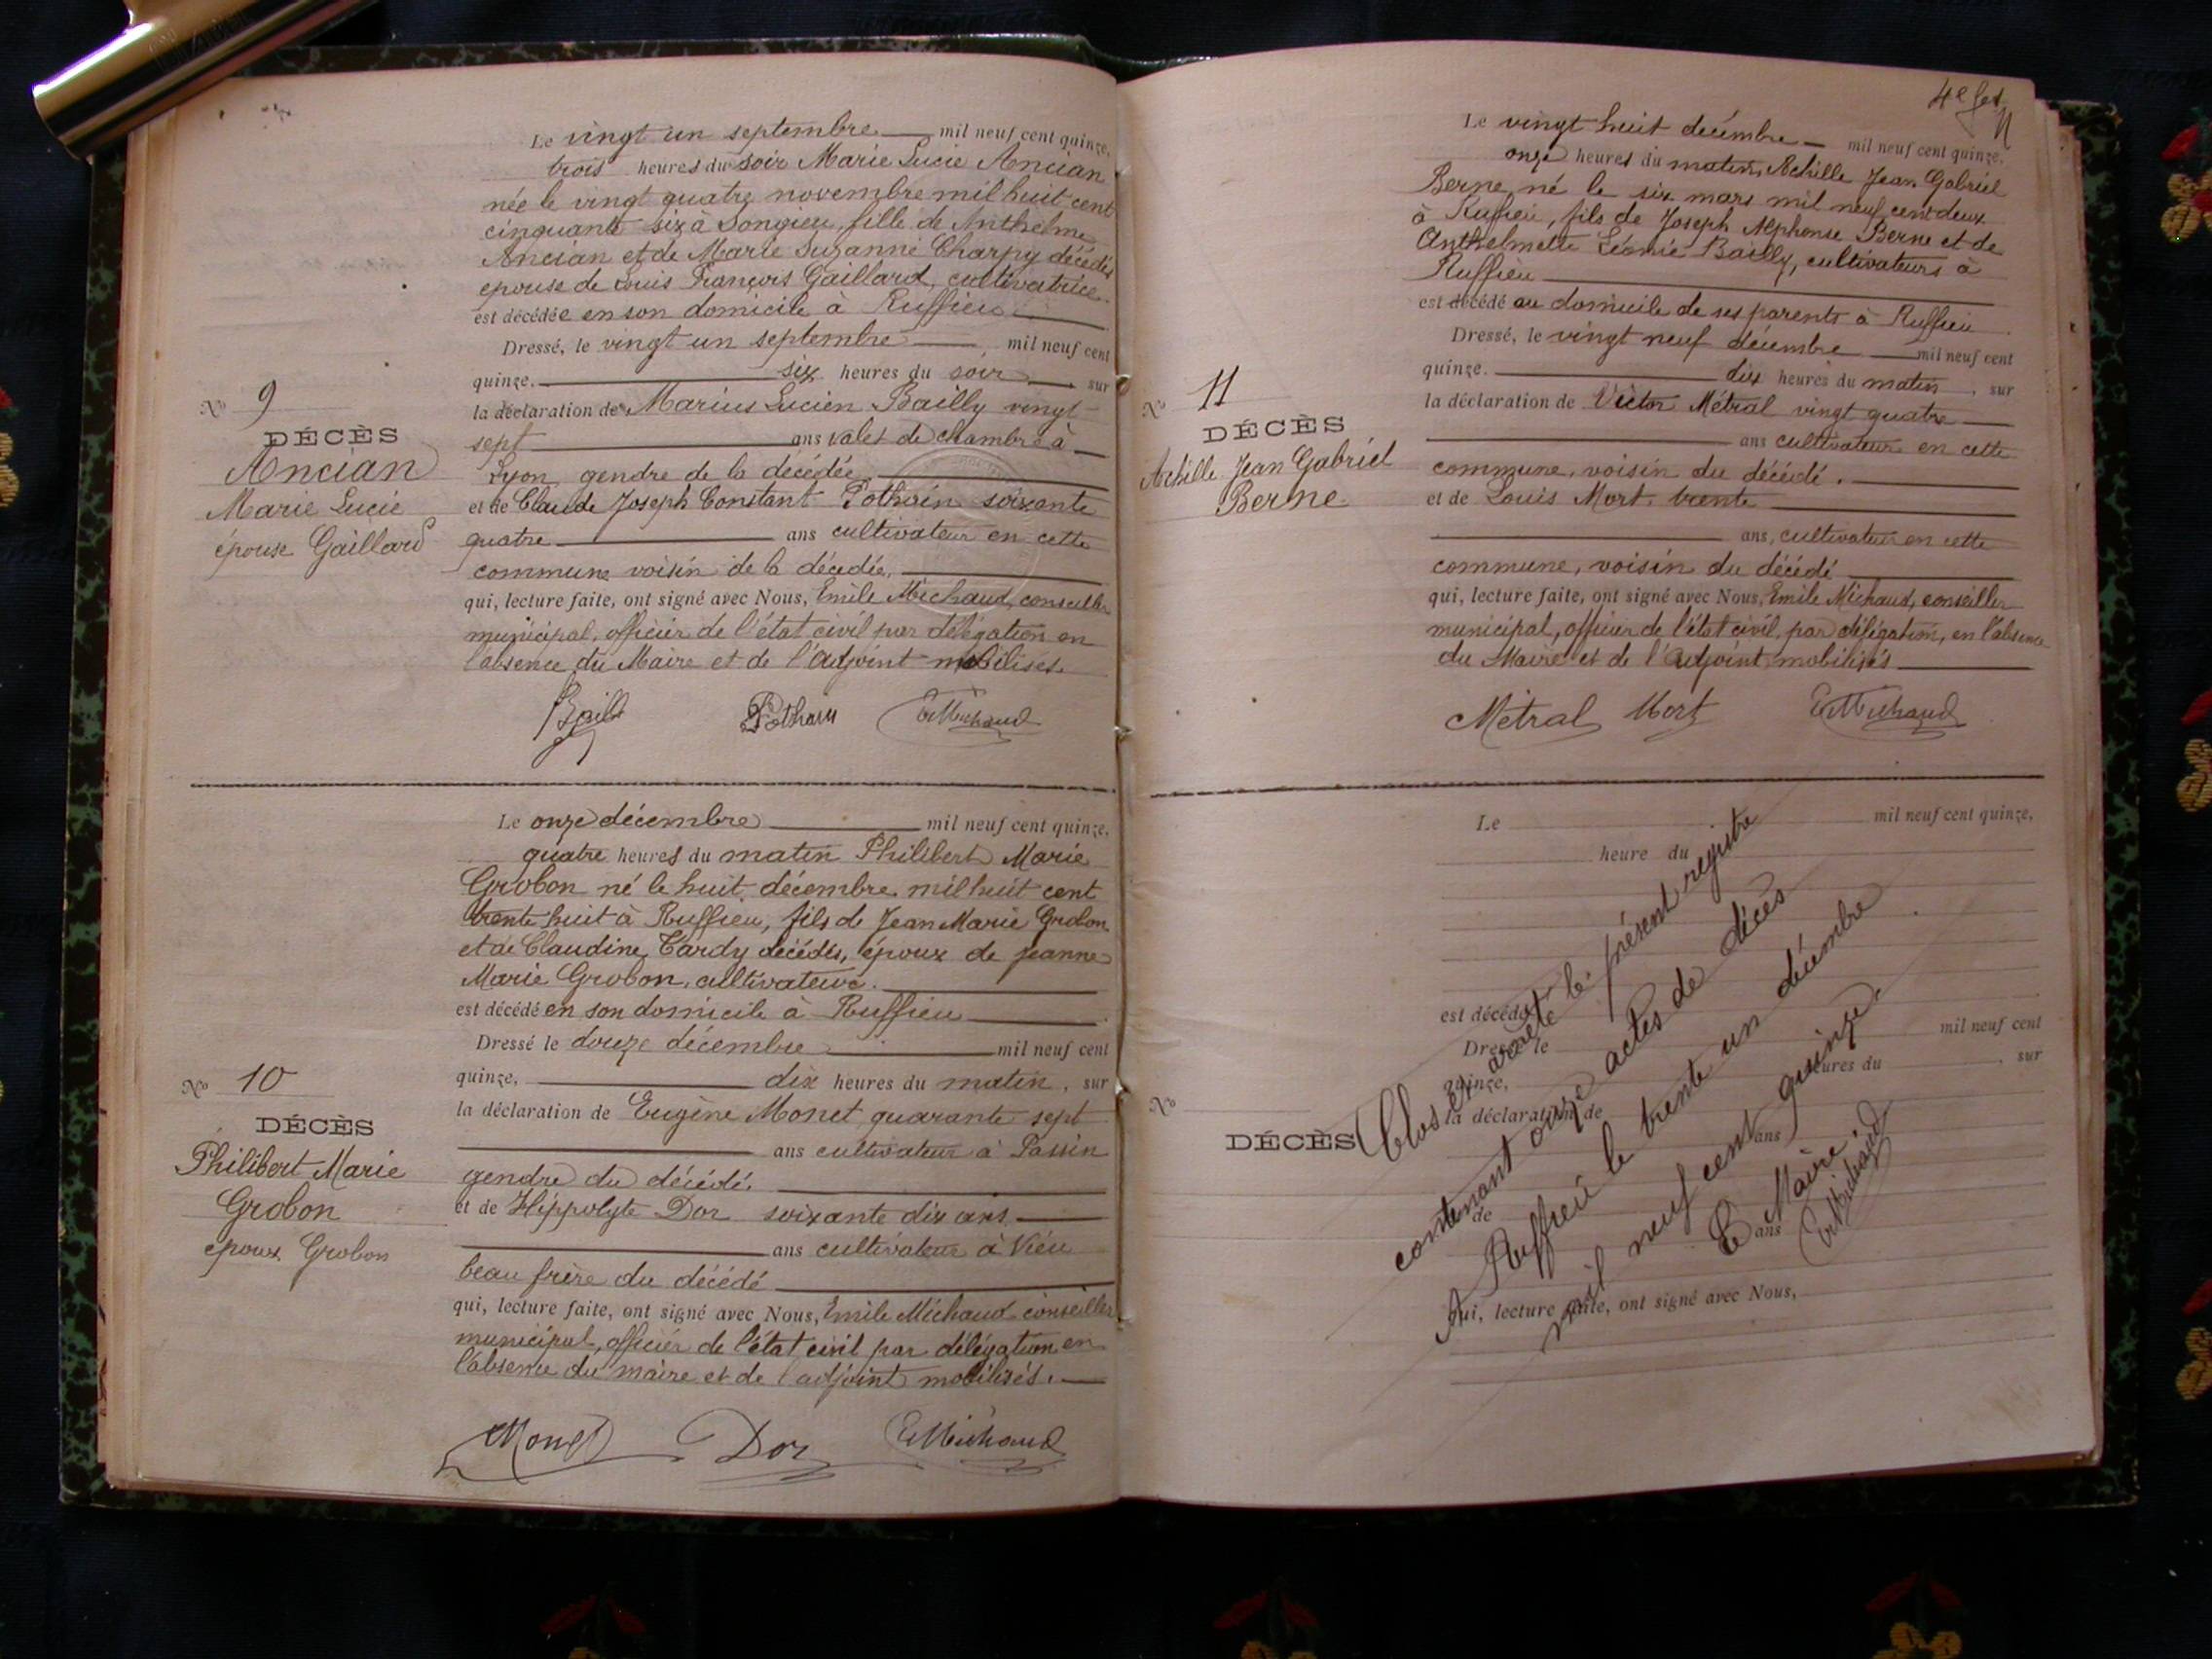 Le vingt un septembre mil neuf cent quinze,
trois heures du soir Marie Lucie Ancian
née le vingt quatre novembre mil huit cent
cinquante six à Songieu, fille de Anthelme
Ancian et de Marie Suzanne Charpy décédés
épouse de Louis François Gaillard, cultivatrice
est décédée en son domicile à Ruffieu
Dressé, le vingt un septembre mil neuf cent
quinze, six heures du soir, sur
la déclaration de Marius Lucien Bailly vingt
sept ans valet de chambre à
Lyon gendre de la décédée
et de Claude Joseph Constant Pothain soixante
quatre ans cultivateur en cette
commune voisin de la décédée,
qui, lecture faite, ont signé avec Nous, Emile Michaud, conseiller
municipal, officier de l'état civil par délégation en
l'absence du Maire et de l'adjoint mobilisés.
Bailly Pothain E Michaud
No 9
DÉCÈS
Ancian
Marie Lucie
épouse Gaillard
Le onze décembre mil neuf cent quinze,
quatre heures du matin Philibert Marie
Grobon né le huit décembre mil huit cent
trente huit à Ruffieu, fils de Jean Marie Grobon
et de Claudine Tardy décédés, époux de Jeanne
Marie Grobon, cultivateur.
est décédé en son domicile à Ruffieu
Dressé le douze décembre mil neuf cent
quinze, dix heures du matin, sur
la déclaration de Eugène Monet quarante sept
ans cultivateur à Passin
gendre du décédé.
et de Hippolyte Dor soixante dix ans
ans cultivateur à Vieu
beau frère du décédé
qui, lecture faite, ont signé avec Nous, Emile Michaud conseiller
municipal, officier de l'état civil par délégation en
l'absence du maire et de l'adjoint mobilisés.
Monet Dor E Michaud
No 10
DÉCÈS
Philibert Marie
Grobon
époux Grobon
4e
Le vingt huit décembre mil neuf cent quinze,
onze heures du matin, Achille Jean Gabriel
Berne, né le six mars mil neuf cent deux
à Ruffieu, fils de Joseph Alphonse Berne et de
Anthelmette Léonie Bailly, cultivateurs à
Ruffieu
est décédé au domicile de ses parents à Ruffieu
Dressé, le vingt neuf décembre mil neuf cent
quinze. dix heures du matin, sur
la déclaration de Victor Métral vingt quatre
ans cultivateur en cette
commune, voisin du décédé.
et de Louis Mort, trente
ans, cultivateur en cette
commune, voisin du décédé
qui, lecture faite, ont signé avec Nous, Emile Michaud, conseiller
municipal, officier de l'état civil, par délégation, en l'absence
du Maire et de l'adjoint mobilisés
Métral Mort E Michaud
No 11
DÉCÈS
Achille Jean Gabriel
Berne
Le mil neuf cent quinze,
heure du
est décédé
Dressé le mil neuf cent
quinze, heures du , sur
la déclaration de
ans
de
ans
qui, lecture faite, ont signé avec Nous,
No
DÉCÈS
Clos et arrêté le présent registre
contenant onze actes de décès
A Ruffieu le trente un décembre
mil neuf cent quinze.
Le Maire.
E Michaud